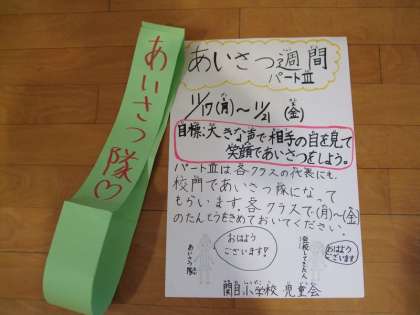 あいさつ隊♡
あいさつ週間
パートⅢ
11/17(月)〜11/21(金)
目標:大きな声で相手の目を見て
笑顔であいさつをしよう。
パートⅢは各クラスの代表にも、
校門であいさつ隊になって
もらいます。各クラスで、(月)〜(金)
のたんとうをきめておいてください。
おはよう
ございます!
あいさつ隊
おはよう
ございます!
小学校 児童会